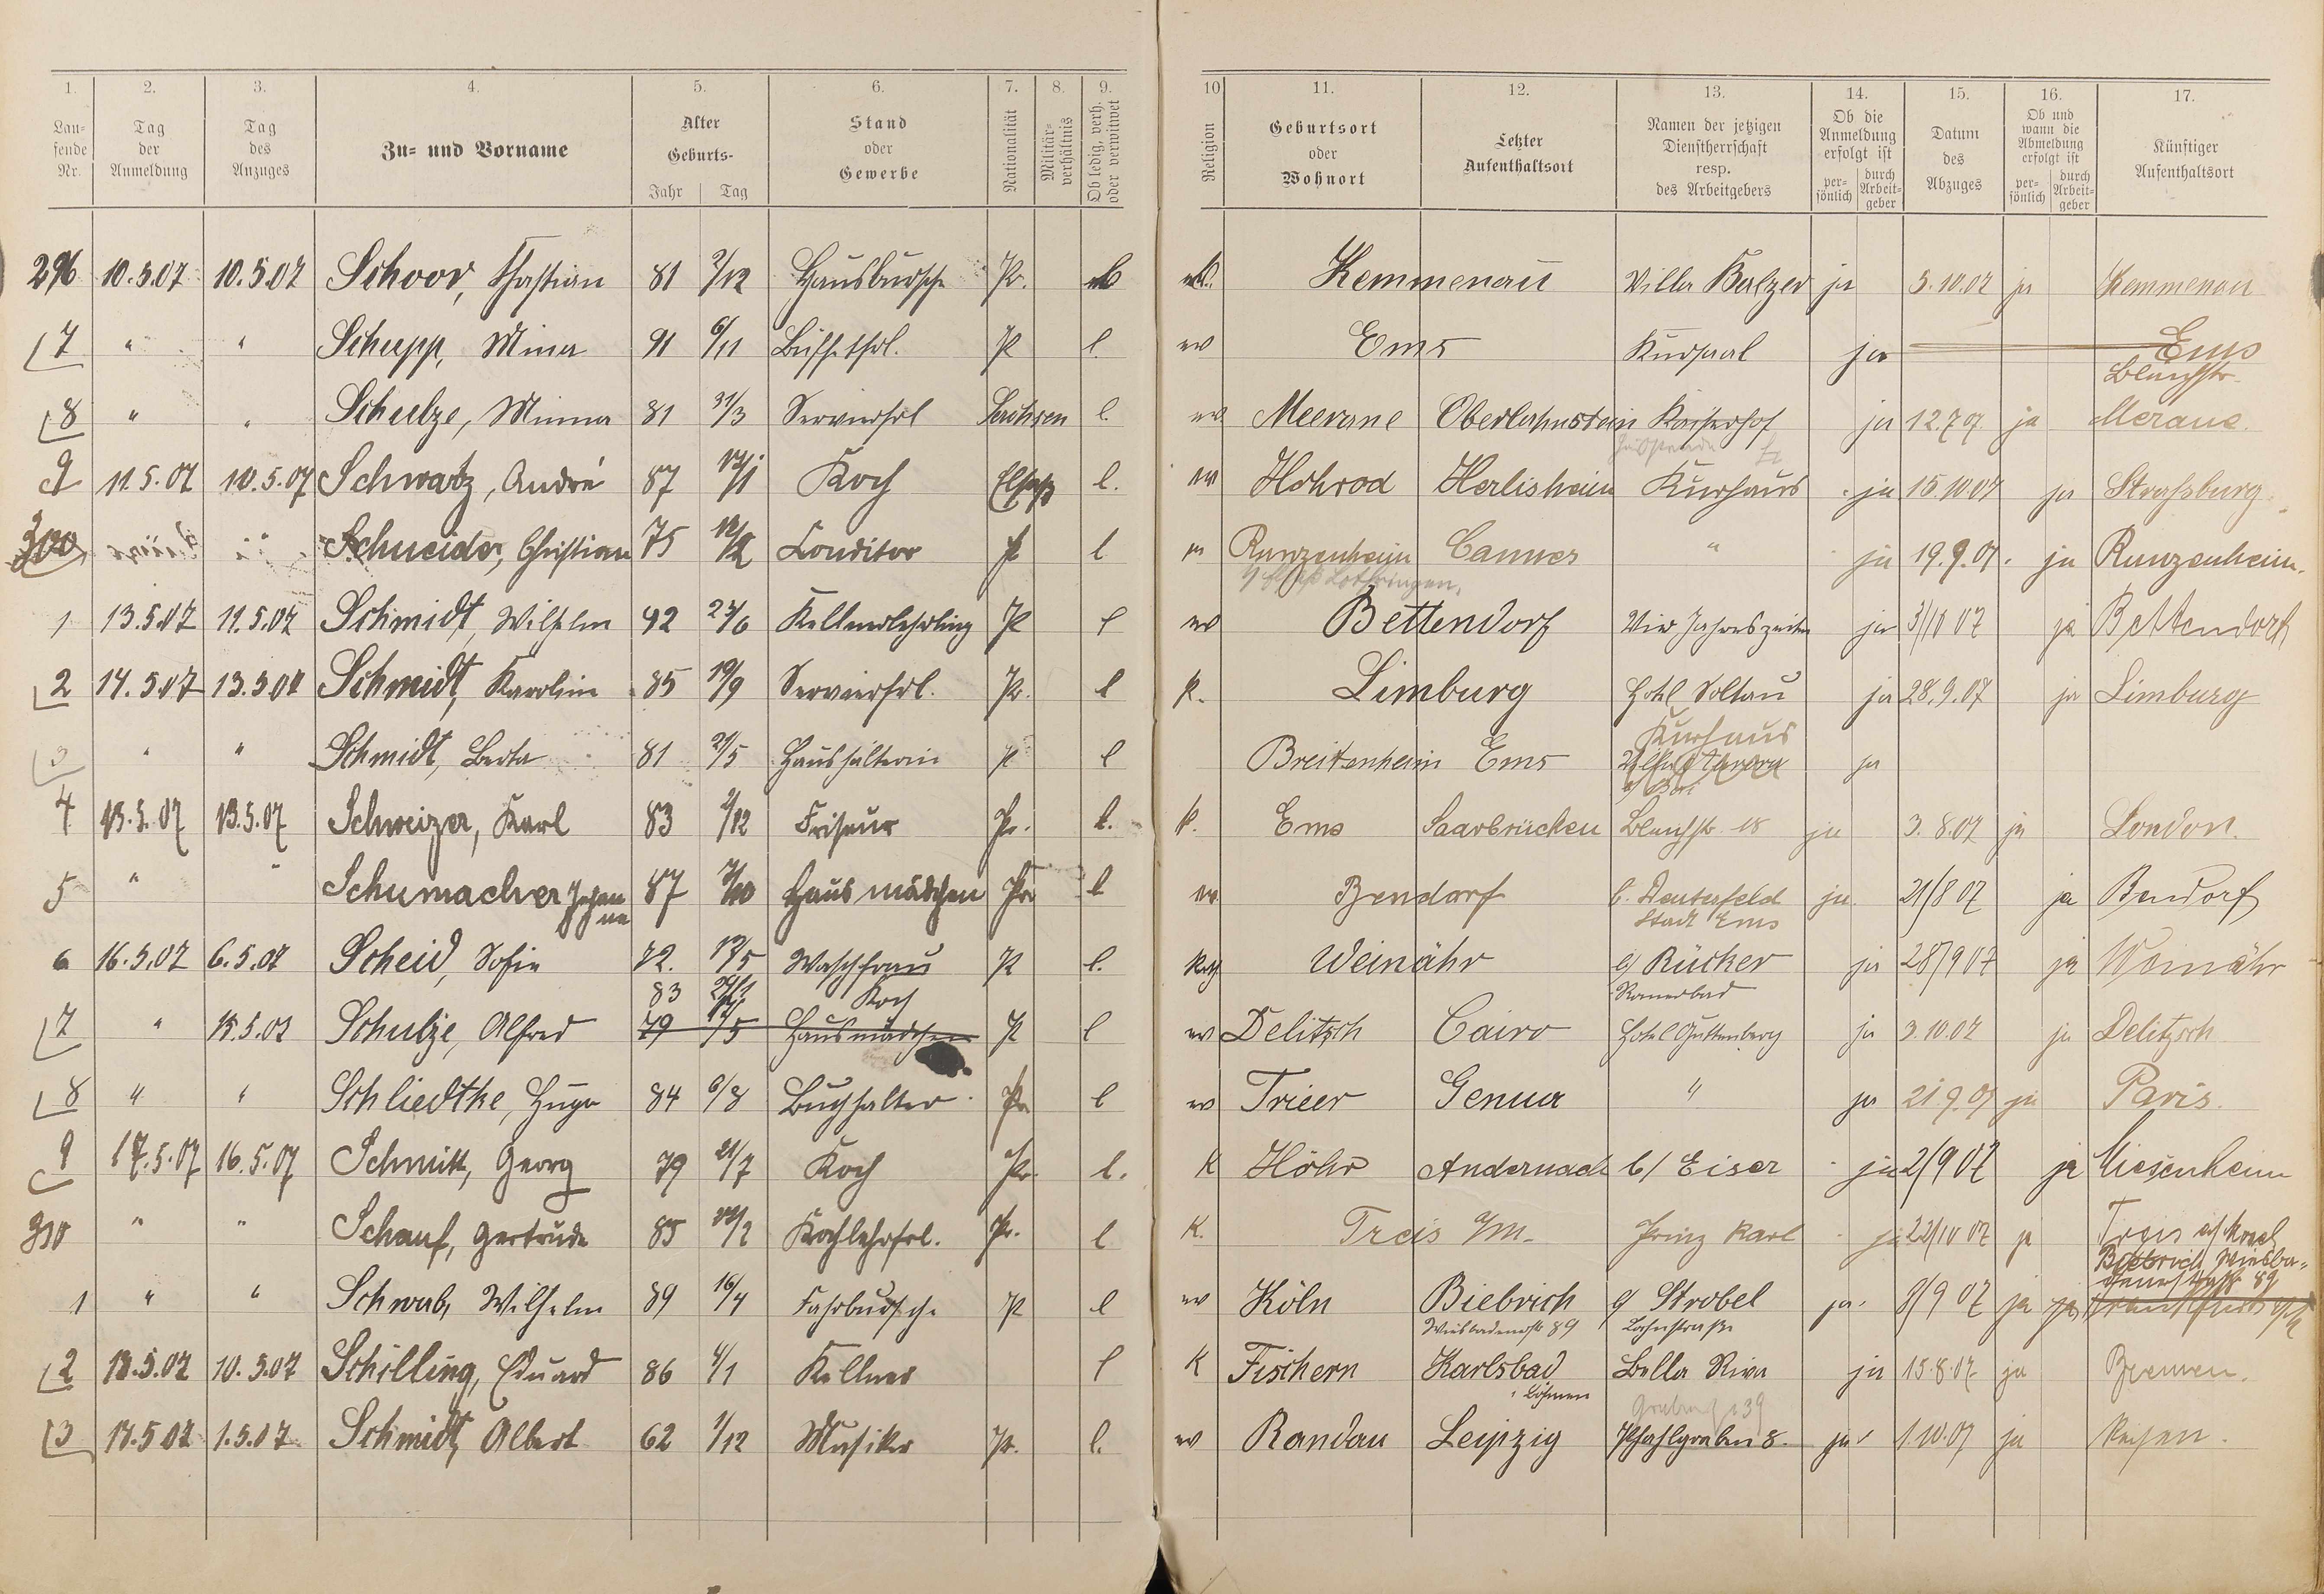 1. 2. 3. 4. 5. 6. 7. 8. 9. 10 11. 12. 13. 14. 15. 16. 17.
Lau-
fende
Nr.
Tag
der
Anmeldung
Tag
des
Anzuges
Zu- und Vorname
Alter
Geburts-
Jahr Tag
Stand
oder
Gewerbe
Nationalität
Militär-
verhältnis
Ob ledig, verh.
oder verwitwet
Religion
Geburtsort
oder
Wohnort
Letzter
Aufenthaltsort
Namen der jetzigen
Dienstherrschaft
resp.
des Arbeitgebers
Ob die
Anmeldung
erfolgt ist
per-
sönlich
durch
Arbeit-
geber
Datum
des
Abzuges
Ob und
wann die
Abmeldung
erfolgt ist
per-
sönlich
durch
Arbeit-
geber
Künftiger
Aufenthaltsort
296 10.5.07 10.5.07 Schoor, 81 2/12 Hausbursche Pr. Kemmenau Villa Balzer ja 3.10.07 ja Kemmenau
7 " " Schupp, Mina 91 6/11 Büffetfrl. P l. ev Ems Kursaal ja Ems
Bleichstr.
8 " " Schulze, Minna 81 31/3 Servierfrl Sachsen l. ev. Meerane Oberlahnstein Kaiserhof ja 12.7.07. ja Merane.
9 11.5.07 10.5.07 Schwatz, André 87 Koch Elsaß l. ev Hohrod Herlisheim Kurhaus ja 15.10.07 ja Straßburg.
300 Schneider, Christian 75 Conditor P l Runzenheim Cannes " ja 19.9.07. ja Runzenheim.
Lothringen.
1 13.5.07 11.5.07 Schmidt, Wilhelm 92 Kellnerlehrling P l ev Bettendorf Vier Jahreszeiten ja 3/10 07 ja Bettendorf
2 14.5.07 13.5.07 Schmidt, Karolin 85 19/9 Servierfrl. Pr. l k. Limburg Hotel Soltau ja 28.9.07 ja Limburg
Kurhaus
3 " " Schmidt, Berta 81 21/5 Haushälterin P l Breitenheim Ems ja
4 13.5.07 13.5.07 Schweizer, Karl 83 2/12 Friseur Pr. l. k. Ems Saarbrücken Bleichstr. 18 ja 3.8.07 ja London.
5 " " Schumacher Johan
ne 87 Hausmädchen Pr. l ev. Bendorf ja 21/8 07 ja Bendorf
Stadt Ems
6 16.5.07 6.5.07 Scheid, Sofie 72. Waschfrau P l. Weinähr b/ Rücker ja 28/9 07 ja Weinähr
Römerbad
83 Koch
7 " 15.5.07 Schulze, Alfred 79 Hausmädchen P l ev Delitzsch Cairo Hotel Guttenberg ja 3.10.07 ja Delitzsch
8 " " Schliedtke, Hugo 84 6/8 Buchhalter Pr l ev Trier Genua " ja 21.9.07 ja Paris.
9 17.5.07 16.5.07 Schmitt, Georg 79 21/7 Koch Pr. l. K Höhr Andernach b/ Eiser ja 2/9 07 ja Miesenheim
310 " " Schauf, Gertrude 85 Kochlehrfrl. Pr. l K. Treis a/M. Prinz Karl ja 22/10 07 ja Treis a/ Mosel
Biebrich Wiesba-
denerstraße 89
1 " " Schwab, Wilhelm 89 16/4 Fahrbursche P l ev Köln Biebrich b/ Strobel ja 8/9 07 ja
Wiesbadenerstr 89 Lahnstraße
2 18.5.07 10.5.07 Schilling, Eduard 86 4/1 Kellner l K Fischern Karlsbad Bella Riva ja 15.8.07 ja Bremen.
Böhmen
3 18.5.07 1.5.07 Schmidt, Albert 62 1/12 Musiker Pr. l. ev Randau Leipzig Pfahlgraben 8. ja 1.10.07 ja Reisen.